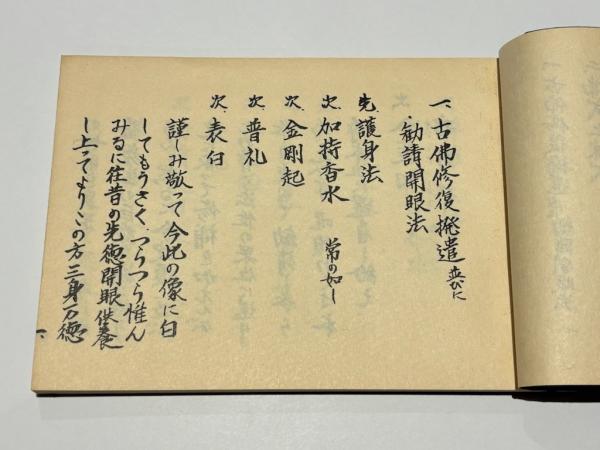 一、古佛修復撥遣並びに
勧請開眼法
先、護身法
次、加持香水 常の如し
次、金剛起
次、普礼
次、表白
謹しみ敬って今此の像に白
してもうさく、つらつら惟ん
みるに往昔の先徳開眼供養
し上ってよりこの方三身万徳